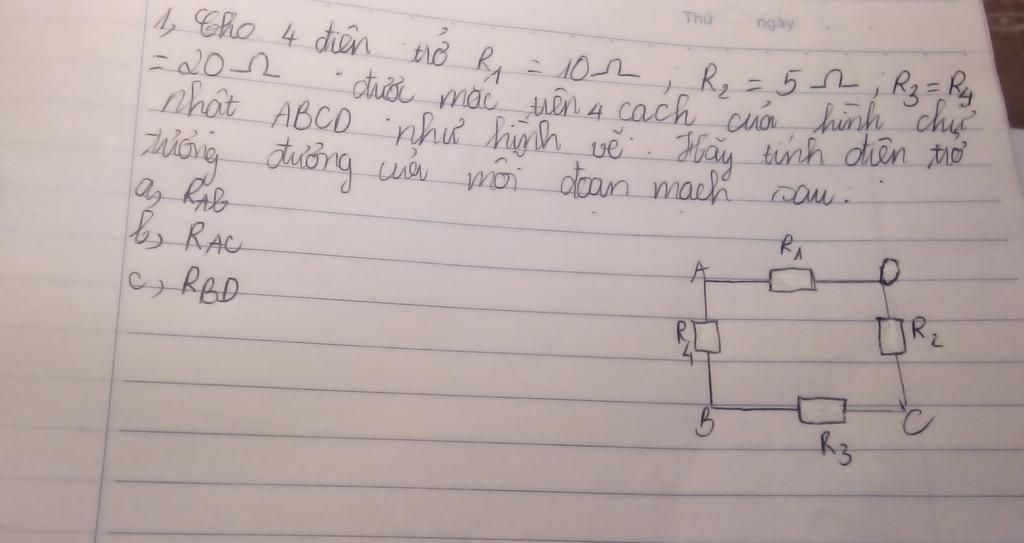 Thứ ngày
1, Cho 4 điện trở R1 = 10Ω, R2 = 5Ω; R3 = R4
= 20Ω . được mắc trên 4 cạch của hình chữ
nhật ABCD như hình vẽ. Hãy tính điện trở
tương đương của mỗi đoạn mạch sau.
a, RAB
b, RAC
c, RBD
R1
A D
R4 R2
B C
R3